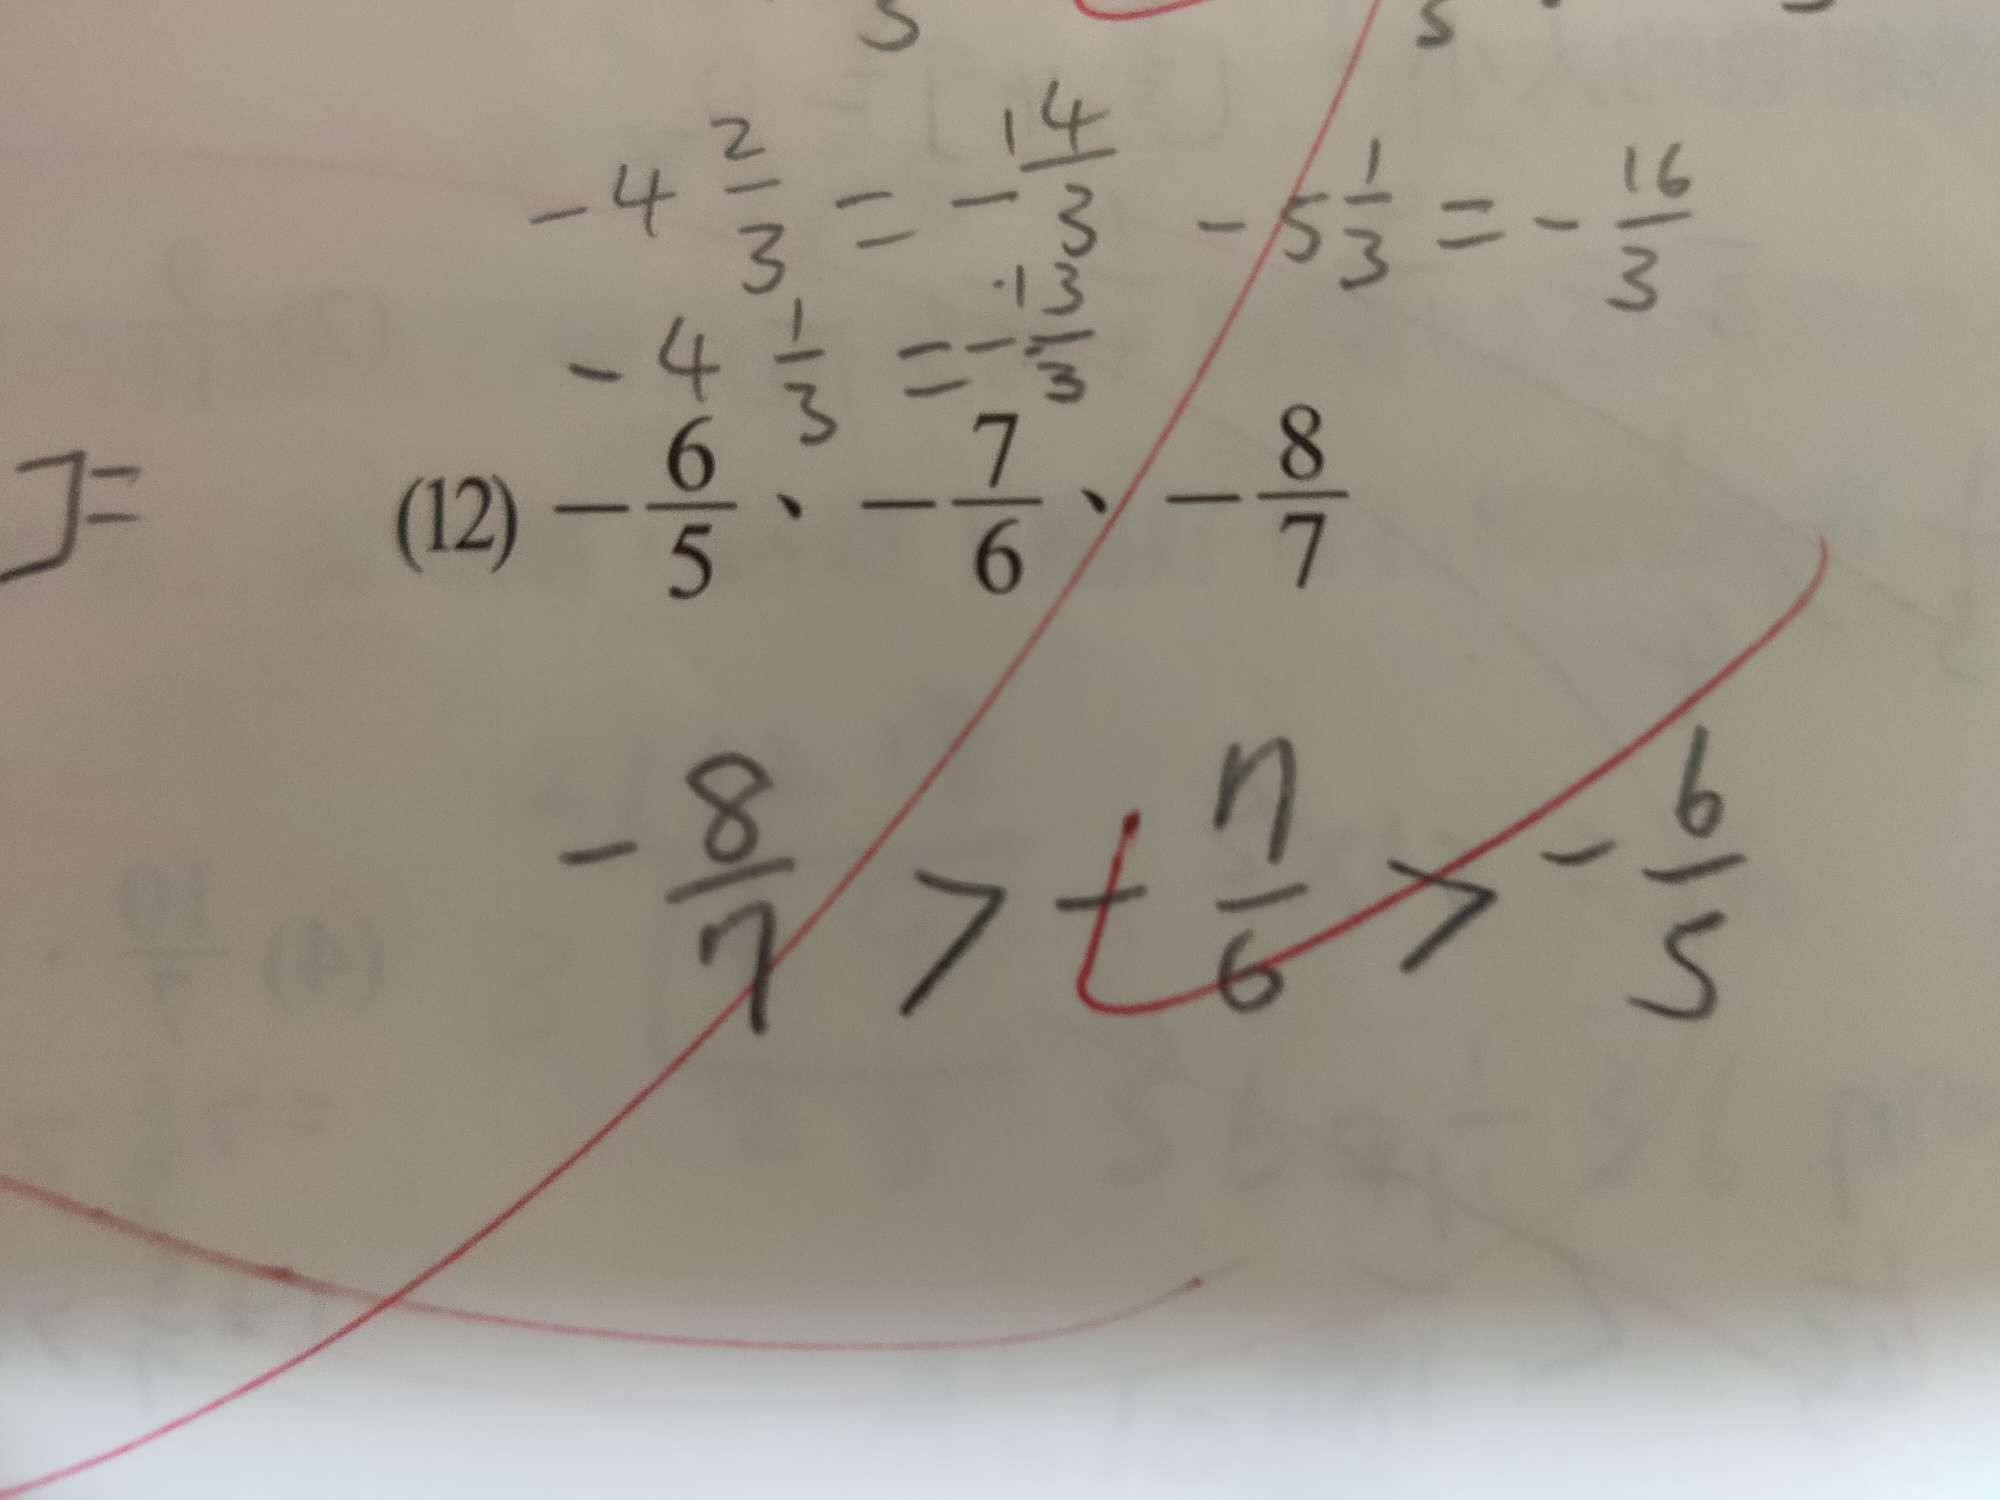 -4 2/3 = -14/3  -5 1/3 = -16/3
-4 1/3 = -13/3
]=
(12) -6/5、-7/6、-8/7
-8/7 > -7/6 > -6/5